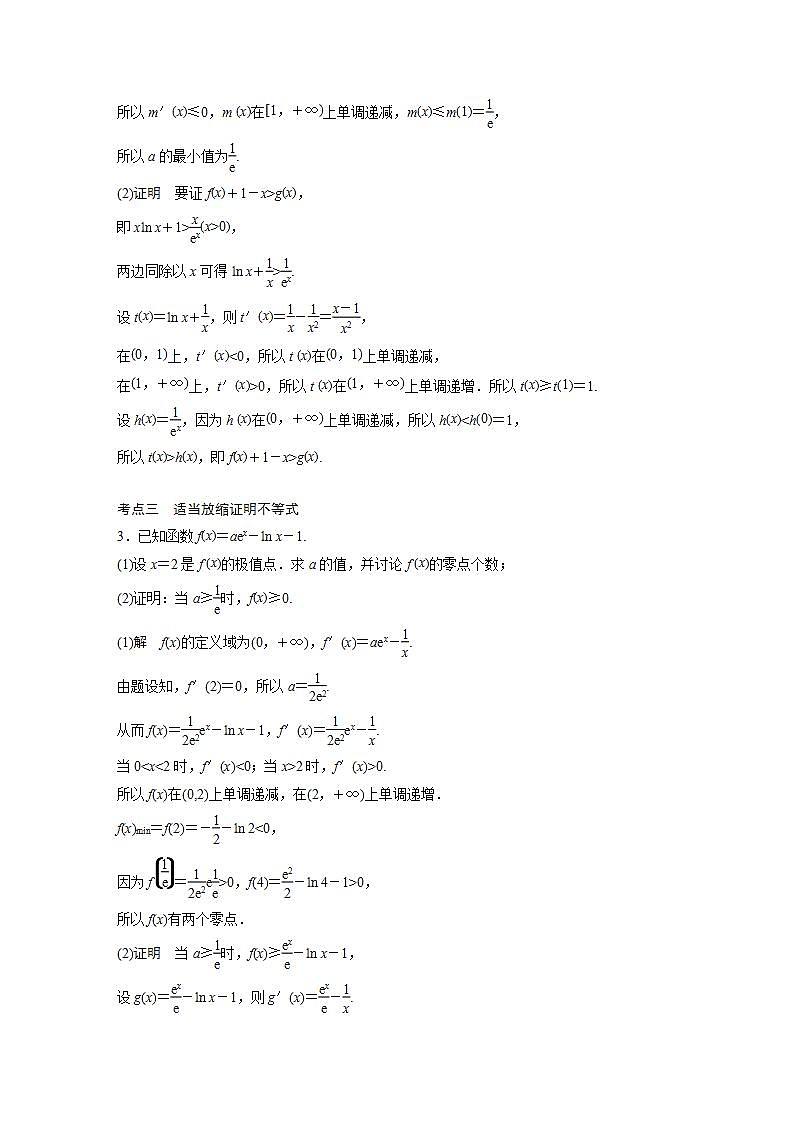 所以 m′(x)≤0，m (x)在[1，＋∞)上单调递减，m(x)≤m(1)＝1/e，
所以 a 的最小值为1/e.
(2)证明　要证 f(x)＋1－x>g(x)，
即 xln x＋1>x/eˣ(x>0)，
两边同除以 x 可得 ln x＋1/x>1/eˣ.
设 t(x)＝ln x＋1/x，则 t′(x)＝1/x－1/x²＝(x－1)/x²，
在(0，1)上，t′(x)<0，所以 t (x)在(0，1)上单调递减，
在(1，＋∞)上，t′(x)>0，所以 t (x)在(1，＋∞)上单调递增．所以 t(x)≥t(1)＝1.
设 h(x)＝1/eˣ，因为 h (x)在(0，＋∞)上单调递减，所以 h(x)<h(0)＝1，
所以 t(x)>h(x)，即 f(x)＋1－x>g(x).
考点三　适当放缩证明不等式
3．已知函数 f(x)＝aeˣ－ln x－1.
(1)设 x＝2 是 f (x)的极值点．求 a 的值，并讨论 f (x)的零点个数；
(2)证明：当 a≥1/e时，f(x)≥0.
(1)解　f(x)的定义域为(0，＋∞)，f′(x)＝aeˣ－1/x.
由题设知，f′(2)＝0，所以 a＝1/2e².
从而 f(x)＝1/2e²eˣ－ln x－1，f′(x)＝1/2e²eˣ－1/x.
当 0<x<2 时，f′(x)<0；当 x>2 时，f′(x)>0.
所以 f(x)在(0,2)上单调递减，在(2，＋∞)上单调递增．
f(x)min＝f(2)＝－1/2－ln 2<0，
因为 f(1/e)＝1/2e²e1/e>0，f(4)＝e²/2－ln 4－1>0，
所以 f(x)有两个零点．
(2)证明　当 a≥1/e时，f(x)≥eˣ/e－ln x－1，
设 g(x)＝eˣ/e－ln x－1，则 g′(x)＝eˣ/e－1/x.